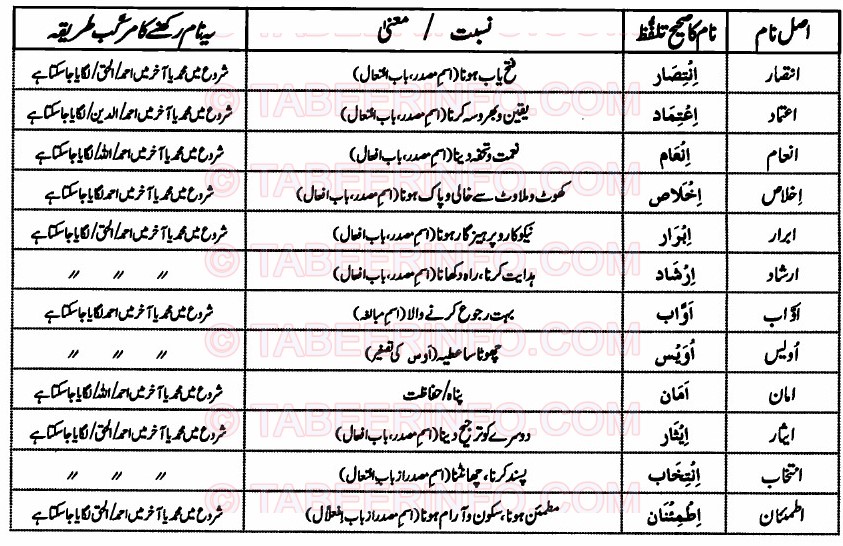 اصل نام	نام کا صحیح تلفُّظ	نسبت / معنیٰ	یہ نام رکھنے کا مرکب طریقہ
انتصار	اِنْتِصَار	فتح یاب ہونا (اسمِ مصدر، باب افتعال)	شروع میں محمد یا آخر میں احمد/الحق/لگایا جاسکتا ہے
اعتماد	اِعْتِمَاد	یقین وبھروسہ کرنا (اسمِ مصدر، باب افتعال)	شروع میں محمد یا آخر میں احمد/الدین/لگایا جاسکتا ہے
انعام	اِنْعَام	نعمت وتحفہ دینا (اسمِ مصدر، باب افعال)	شروع میں محمد یا آخر میں احمد/اللہ/لگایا جاسکتا ہے
اِخلاص	اِخْلَاص	کھوٹ وملاوٹ سے خالی و پاک ہونا (اسمِ مصدر، باب افعال)	شروع میں محمد یا آخر میں احمد لگایا جاسکتا ہے
ابرار	اِبْرَار	نیکوکار و پرہیزگار ہونا (اسمِ مصدر، باب افعال)	شروع میں محمد یا آخر میں احمد/الحق/لگایا جاسکتا ہے
ارشاد	اِرْشَاد	ہدایت کرنا، راہ دکھانا (اسمِ مصدر، باب افعال)	〃 〃 〃
اوّاب	اَوَّاب	بہت رجوع کرنے والا (اسمِ مبالغہ)	شروع میں محمد یا آخر میں احمد لگایا جاسکتا ہے
اُویس	اُوَیْس	چھوٹا سا عطیہ (اَوس کی تصغیر)	〃 〃 〃
امان	اَمَان	پناہ/حفاظت	شروع میں محمد یا آخر میں احمد/اللہ/لگایا جاسکتا ہے
ایثار	اِیْثَار	دوسرے کو ترجیح دینا (اسمِ مصدر، باب افعال)	شروع میں محمد یا آخر میں احمد/الحق/لگایا جاسکتا ہے
انتخاب	اِنْتِخَاب	پسند کرنا، چھانٹنا (اسمِ مصدر از باب افتعال)	〃 〃 〃
اطمئنان	اِطْمِئْنَان	مطمئن ہونا، سکون و آرام ہونا (اسمِ مصدر از باب اِفعلال)	شروع میں محمد یا آخر میں احمد/الحق لگایا جاسکتا ہے
© TABEERINFO.COM
© TABEERINFO.COM
© TABEERINFO.COM
© TABEERINFO.COM
© TABEERINFO.COM
© TABEERINFO.COM